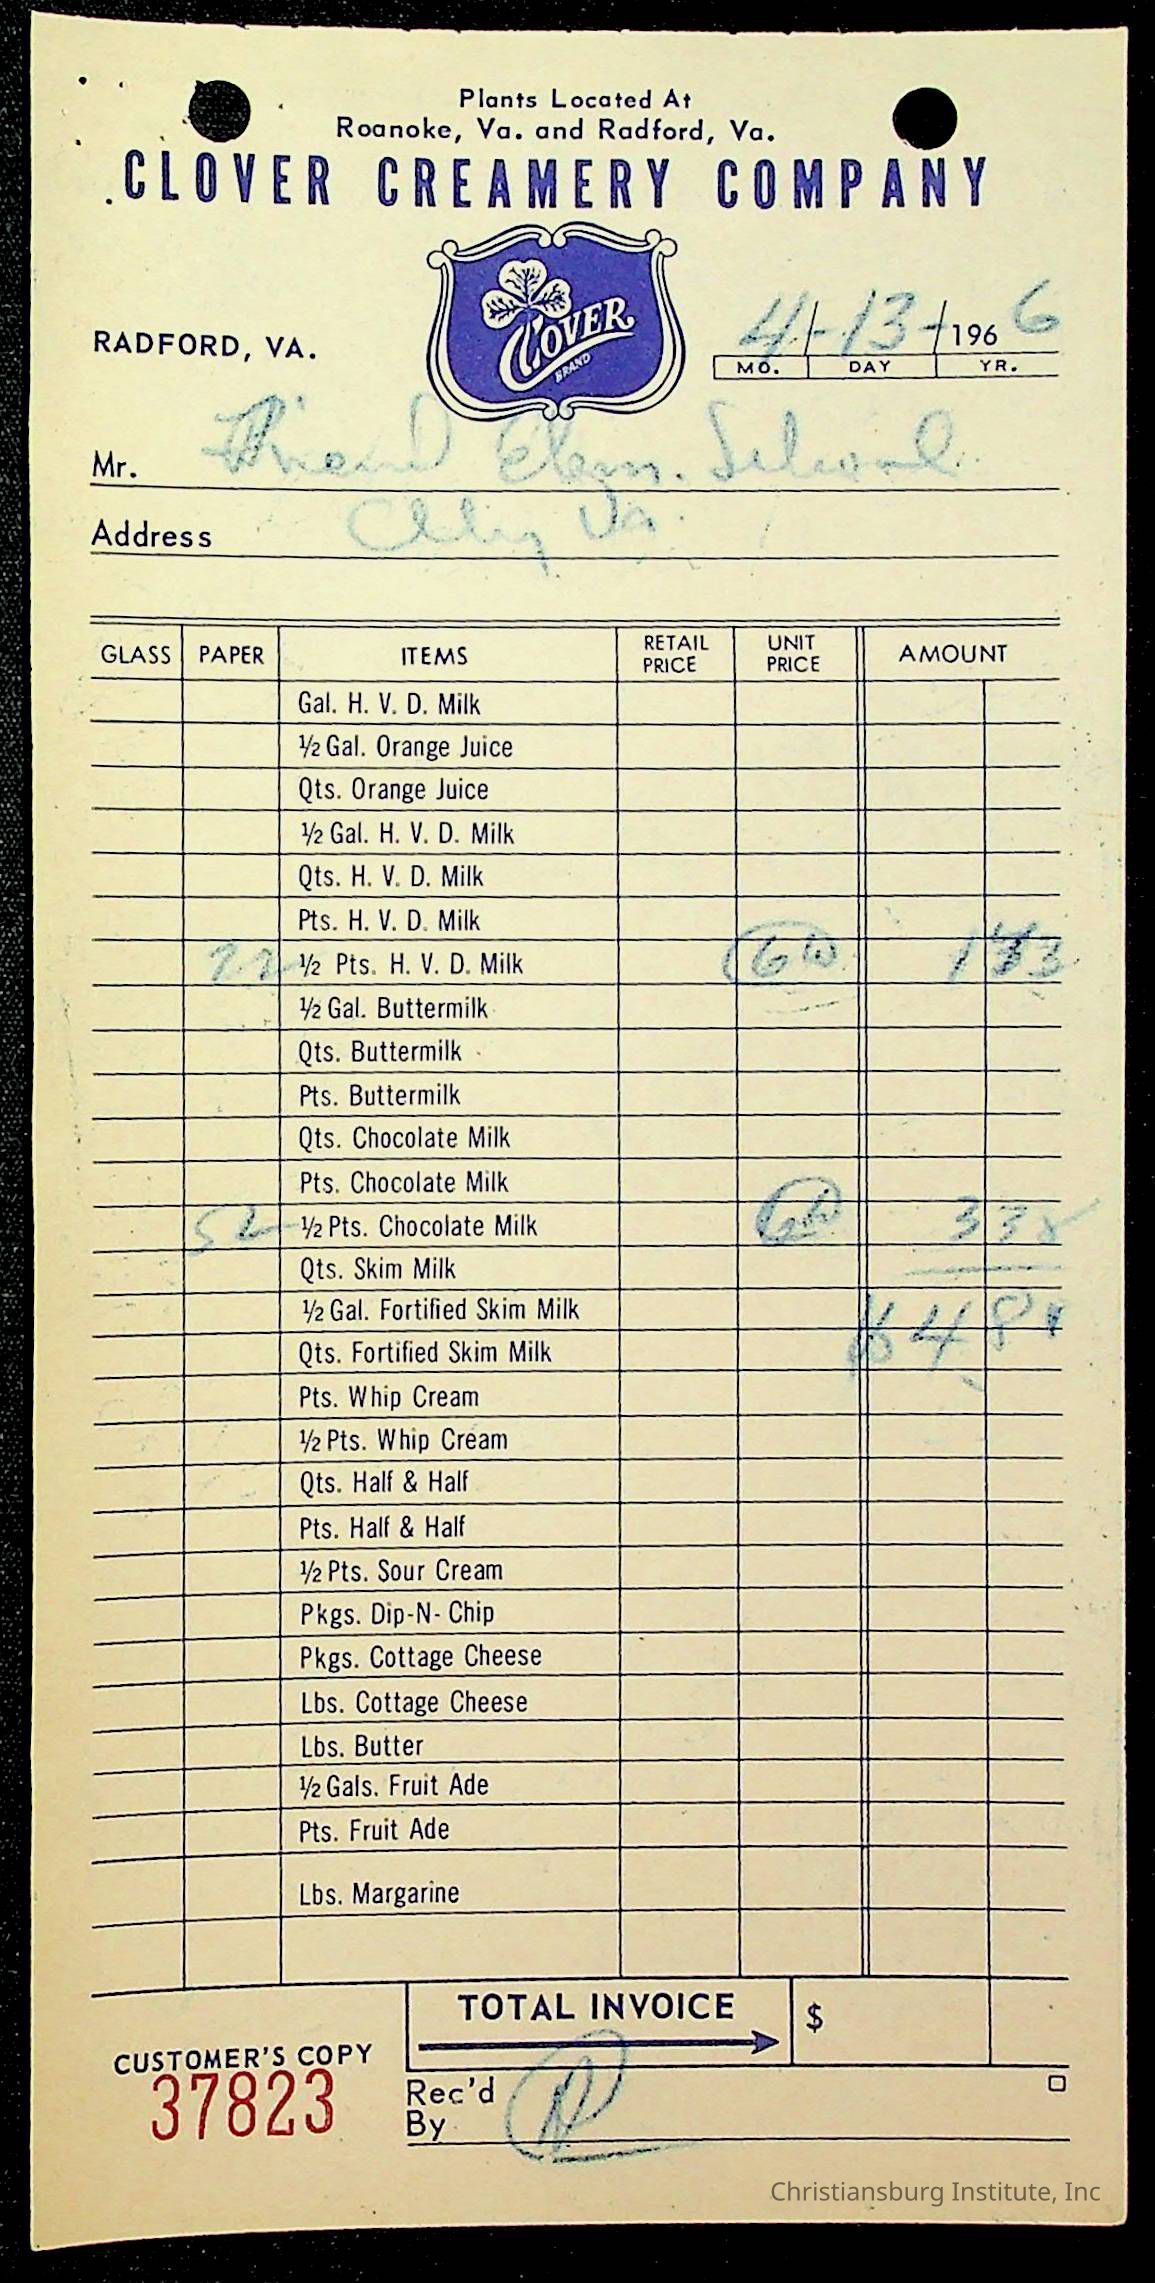 Plants Located At
Roanoke, Va. and Radford, Va.
CLOVER CREAMERY COMPANY
CLOVER
BRAND
RADFORD, VA.
4-13-1966
MO. DAY YR.
Mr. Friend Elem. School
Address Va.
GLASS PAPER ITEMS RETAIL PRICE UNIT PRICE AMOUNT
Gal. H. V. D. Milk
½ Gal. Orange Juice
Qts. Orange Juice
½ Gal. H. V. D. Milk
Qts. H. V. D. Milk
Pts. H. V. D. Milk
22 ½ Pts. H. V. D. Milk
½ Gal. Buttermilk
Qts. Buttermilk
Pts. Buttermilk
Qts. Chocolate Milk
Pts. Chocolate Milk
52 ½ Pts. Chocolate Milk 338
Qts. Skim Milk
½ Gal. Fortified Skim Milk
Qts. Fortified Skim Milk
Pts. Whip Cream
½ Pts. Whip Cream
Qts. Half & Half
Pts. Half & Half
½ Pts. Sour Cream
Pkgs. Dip-N-Chip
Pkgs. Cottage Cheese
Lbs. Cottage Cheese
Lbs. Butter
½ Gals. Fruit Ade
Pts. Fruit Ade
Lbs. Margarine
TOTAL INVOICE $
CUSTOMER'S COPY
37823
Rec'd
By
Christiansburg Institute, Inc